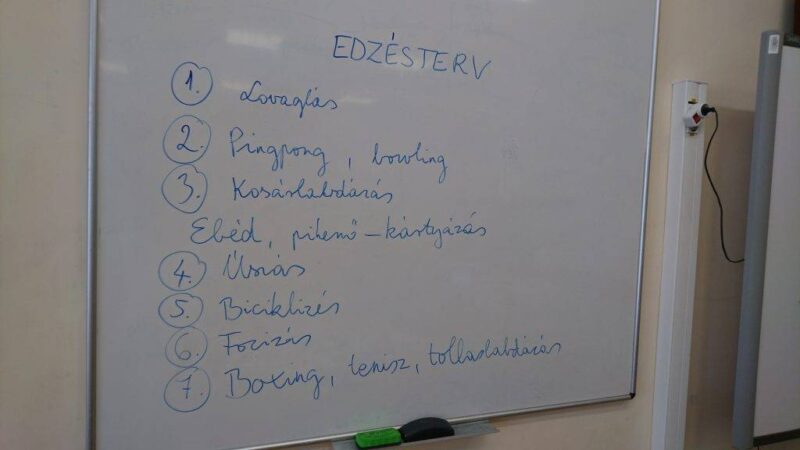 EDZÉSTERV
1. Lovaglás
2. Pingpong, bowling
3. Kosárlabdázás
Ebéd, pihenő - kártyázás
4. Úszás
5. Biciklizés
6. Focizás
7. Boxing, tenisz, tollaslabdázás